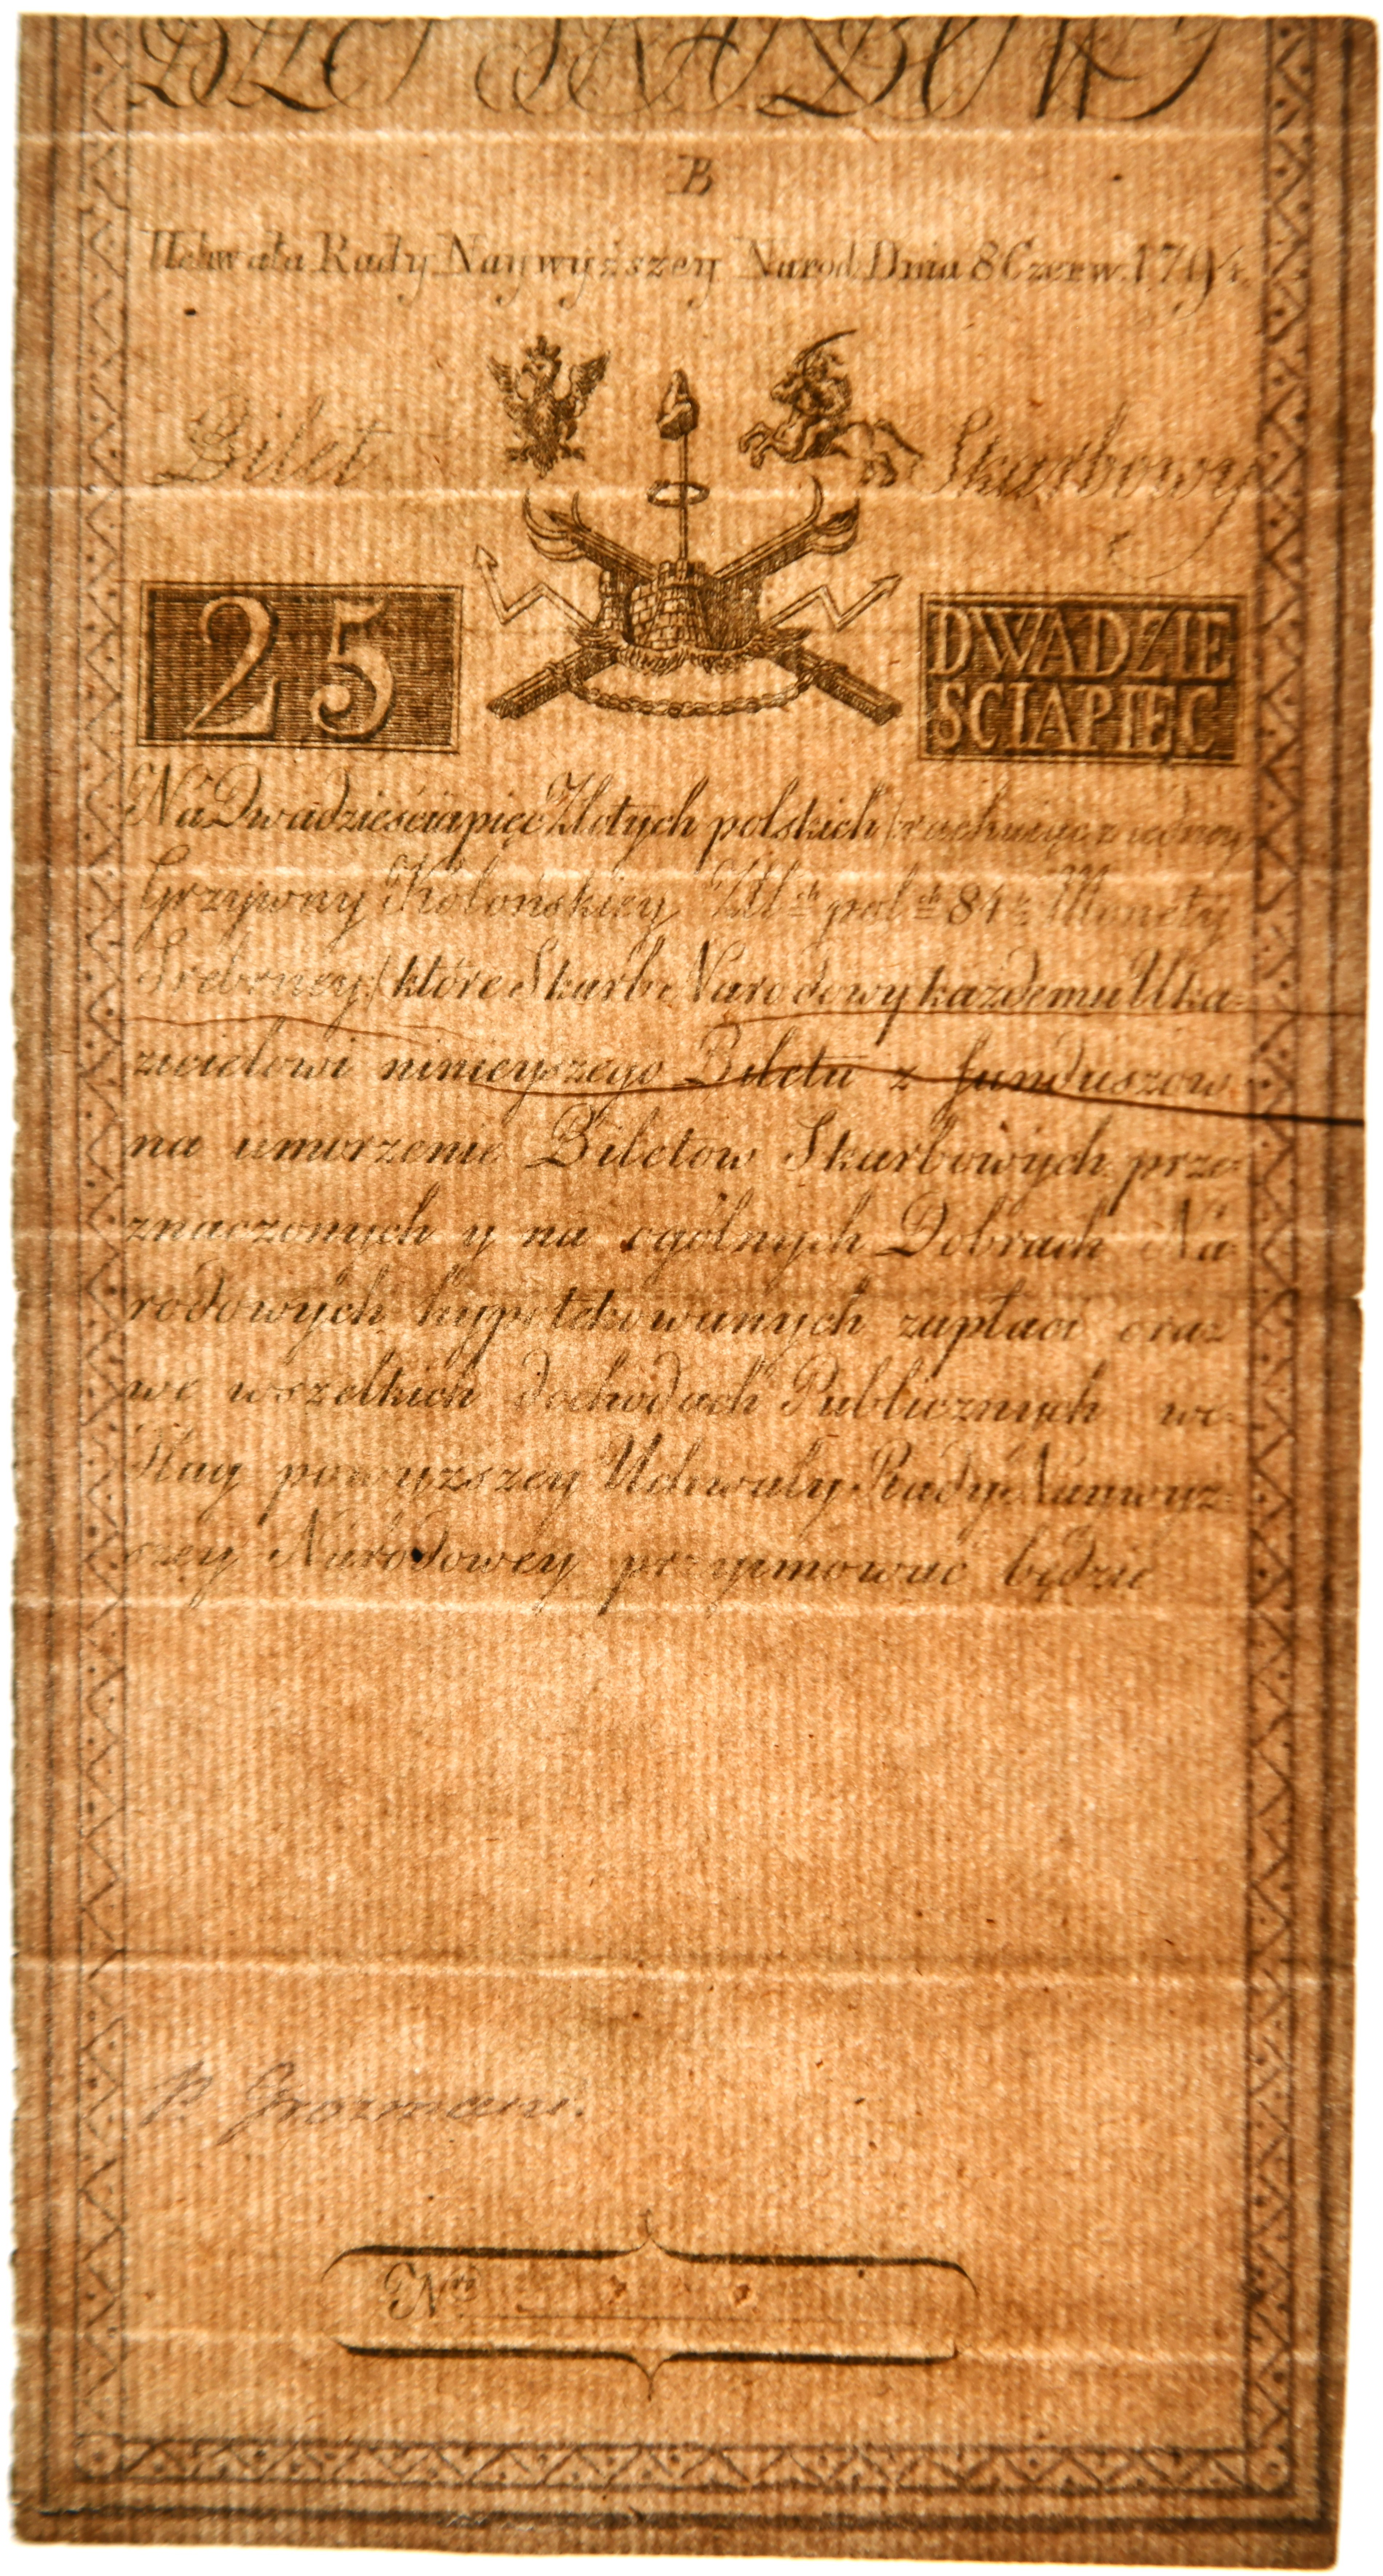 B
Uchwała Rady Naywyższey Narod. Dnia 8 Czerw. 1794.
Bilet Skarbowy
25
DWADZIE
SCIAPIĘC
Na Dwadzieściapięć Złotych polskich (rachuiąc z iedney
Grzywny Kolońskiey Zł ch pol ch 84 ½ Monety
Srebrney) które Skarb Narodowy każdemu Uka-
zicielowi ninieyszego Biletu z funduszow
na umorzenie Biletow Skarbowych prze-
znaczonych y na ogólnych Dobrach Na-
rodowych hypotekowanych zapłaci oraz
we wszelkich dochodach Publicznych we-
dług powyższey Uchwały Rady Naywyż-
szey Narodowey przyimować będzie
P. Grozmani.
Nro